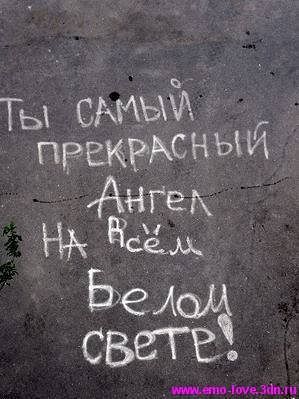 Ты САМЫЙ
ПРЕКРАСНЫЙ
АНГЕЛ
НА ВСЁМ
БЕЛОМ
СВЕТЕ!
www.emo-love.3dn.ru